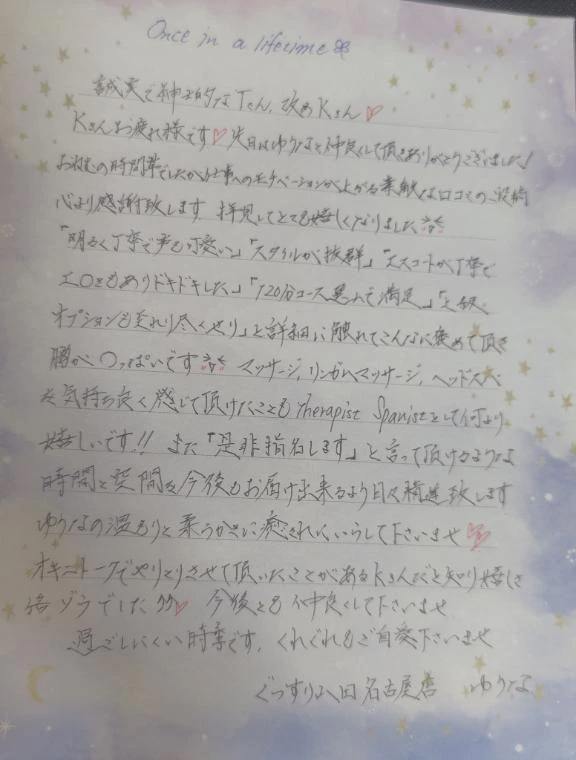 Once in a lifetime
誠実で神対応なTさん、改めKさん♡
Kさんお疲れ様です♡先日はゆうなと仲良くして頂きありがとうございました!
お忙しい時間帯でしたがお仕事へのモチベーションが上がる素敵な口コミのご投稿
心より感謝致します 拝見してとても嬉しくなりました
「明るく丁寧で声も可愛い」「スタイルが抜群」「エスコートが丁寧で
エ〇さもありドキドキした」「120分コース選んで満足」「
オプションも至れり尽くせり」と詳細に触れてこんなに褒めて頂き
胸がいっぱいです マッサージ、リンパマッサージ、ヘッドスパ
を気持ち良く感じて頂けたこともTherapist Spanistとして何より
嬉しいです!! また「是非指名します」と言って頂けるような
時間と空間を今後もお届け出来るよう日々精進致します
ゆうなの温もりと柔らかさに癒されにいらして下さいませ♡
オキニトークでやりとりさせて頂いたことがあるKさんだと知り嬉しさ
倍ゾウでした♡ 今後とも仲良くして下さいませ
過ごしにくい時季です、くれぐれもご自愛下さいませ
ぐっすり山田 名古屋店 ゆうな